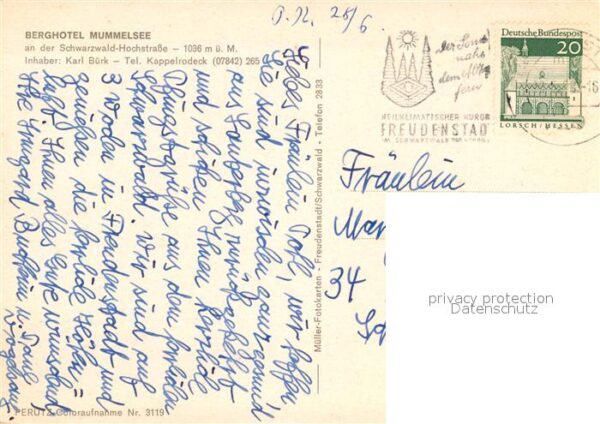 P.K. 25/6.
BERGHOTEL MUMMELSEE
an der Schwarzwald-Hochstraße – 1036 m ü. M.
Inhaber: Karl Bürk – Tel. Kappelrodeck (07842) 265
Liebes Fräulein Pohl, wir hoffen,
Sie sind inzwischen ganz gesund
aus zurückgekehrt
und schicken Ihnen herzliche
Pfingstgrüße aus dem herrlichen
Schwarzwald. Wir sind auf
3 Wochen in Freudenstadt und
genießen die herrliche Höhen=
luft. Ihnen alles Gute wünschend
Ihre Irmgard u.
PERUTZ-Coloraufnahme Nr. 3119
Müller-Fotokarten - Freudenstadt/Schwarzwald - Telefon 2833
Der Sonne
nah
dem Alltag
fern
HEILKLIMATISCHER KURORT
FREUDENSTADT
IM SCHWARZWALD
Deutsche Bundespost
20
LORSCH/HESSEN
Fräulein
34
privacy protection
Datenschutz